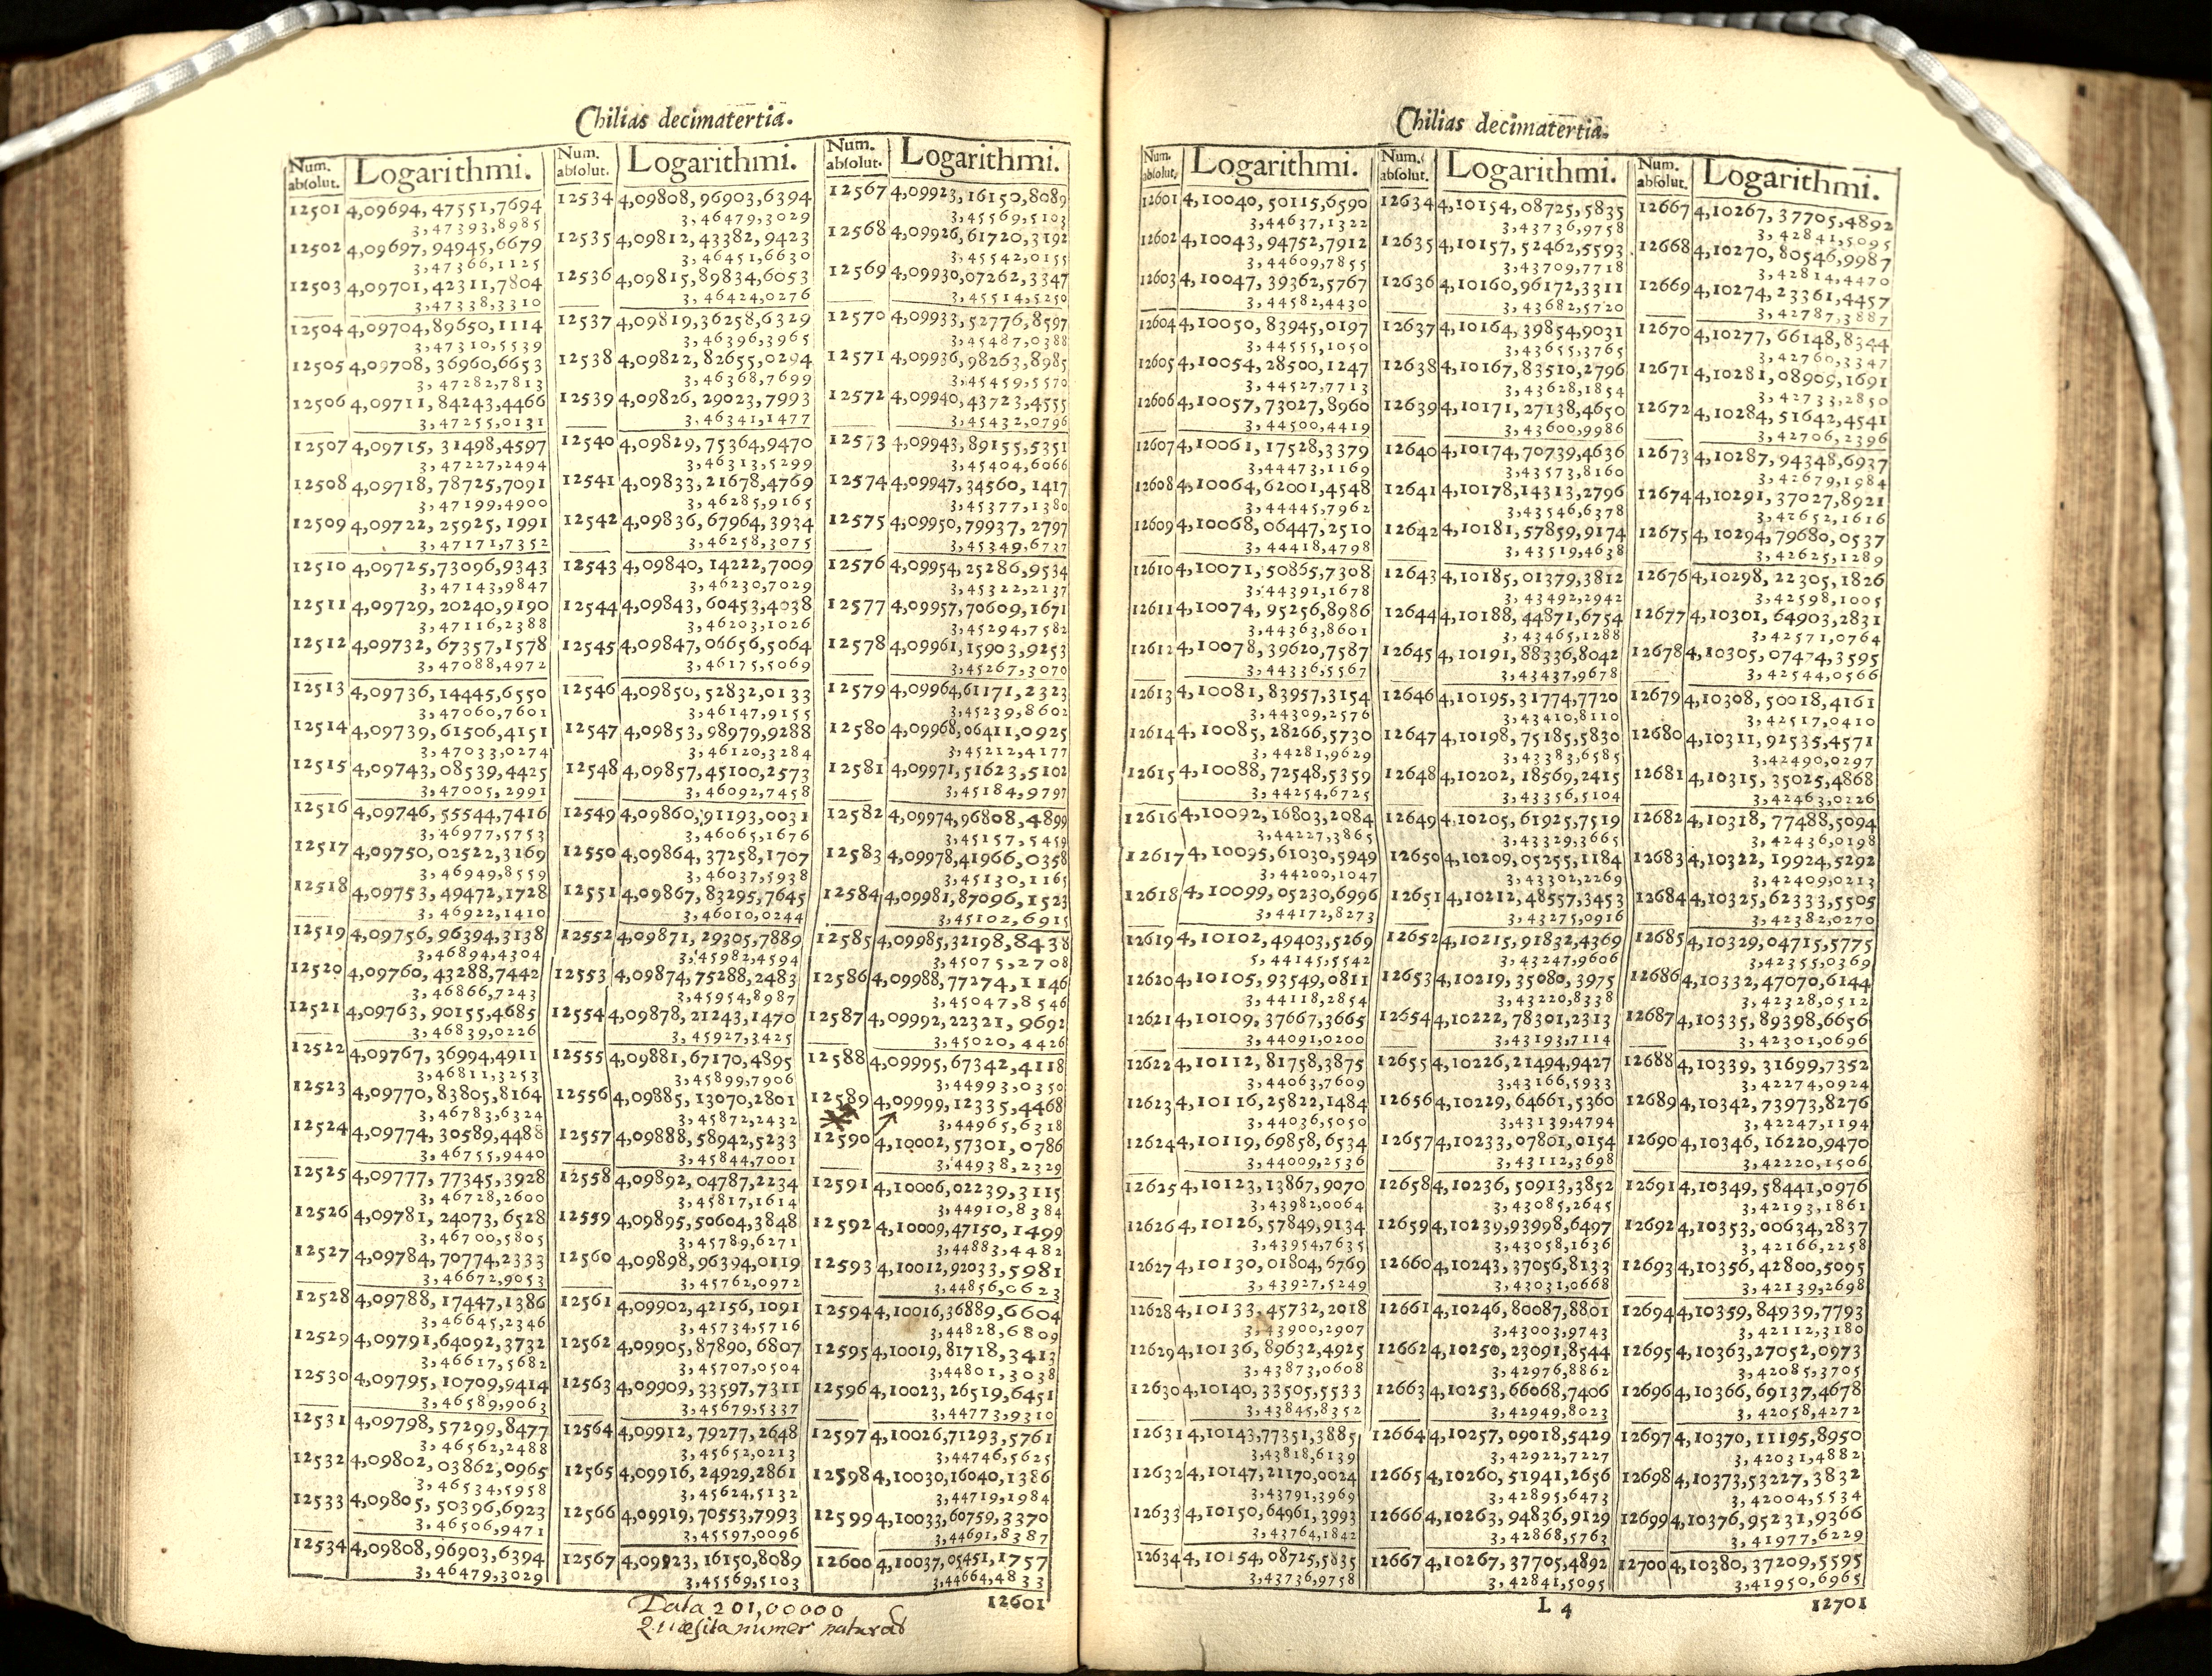 Chilias decimatertia.
Num. absolut. Logarithmi.
12501 4,09694,47551,7694
3,47393,8985
12502 4,09697,94945,6679
3,47366,1125
12503 4,09701,42311,7804
3,47338,3310
12504 4,09704,89650,1114
3,47310,5539
12505 4,09708,36960,6653
3,47282,7813
12506 4,09711,84243,4466
3,47255,0131
12507 4,09715,31498,4597
3,47227,2494
12508 4,09718,78725,7091
3,47199,4900
12509 4,09722,25925,1991
3,47171,7352
12510 4,09725,73096,9343
3,47143,9847
12511 4,09729,20240,9190
3,47116,2388
12512 4,09732,67357,1578
3,47088,4972
12513 4,09736,14445,6550
3,47060,7601
12514 4,09739,61506,4151
3,47033,0274
12515 4,09743,08539,4425
3,47005,2991
12516 4,09746,55544,7416
3,46977,5753
12517 4,09750,02522,3169
3,46949,8559
12518 4,09753,49472,1728
3,46922,1410
12519 4,09756,96394,3138
3,46894,4304
12520 4,09760,43288,7442
3,46866,7243
12521 4,09763,90155,4685
3,46839,0226
12522 4,09767,36994,4911
3,46811,3253
12523 4,09770,83805,8164
3,46783,6324
12524 4,09774,30589,4488
3,46755,9440
12525 4,09777,77345,3928
3,46728,2600
12526 4,09781,24073,6528
3,46700,5805
12527 4,09784,70774,2333
3,46672,9053
12528 4,09788,17447,1386
3,46645,2346
12529 4,09791,64092,3732
3,46617,5682
12530 4,09795,10709,9414
3,46589,9063
12531 4,09798,57299,8477
3,46562,2488
12532 4,09802,03862,0965
3,46534,5958
12533 4,09805,50396,6923
3,46506,9471
12534 4,09808,96903,6394
3,46479,3029
Num. absolut. Logarithmi.
12534 4,09808,96903,6394
3,46479,3029
12535 4,09812,43382,9423
3,46451,6630
12536 4,09815,89834,6053
3,46424,0276
12537 4,09819,36258,6329
3,46396,3965
12538 4,09822,82655,0294
3,46368,7699
12539 4,09826,29023,7993
3,46341,1477
12540 4,09829,75364,9470
3,46313,5299
12541 4,09833,21678,4769
3,46285,9165
12542 4,09836,67964,3934
3,46258,3075
12543 4,09840,14222,7009
3,46230,7029
12544 4,09843,60453,4038
3,46203,1026
12545 4,09847,06656,5064
3,46175,5069
12546 4,09850,52832,0133
3,46147,9155
12547 4,09853,98979,9288
3,46120,3284
12548 4,09857,45100,2573
3,46092,7458
12549 4,09860,91193,0031
3,46065,1676
12550 4,09864,37258,1707
3,46037,5938
12551 4,09867,83295,7645
3,46010,0244
12552 4,09871,29305,7889
3,45982,4594
12553 4,09874,75288,2483
3,45954,8987
12554 4,09878,21243,1470
3,45927,3425
12555 4,09881,67170,4895
3,45899,7906
12556 4,09885,13070,2801
3,45872,2432
12557 4,09888,58942,5233
3,45844,7001
12558 4,09892,04787,2234
3,45817,1614
12559 4,09895,50604,3848
3,45789,6271
12560 4,09898,96394,0119
3,45762,0972
12561 4,09902,42156,1091
3,45734,5716
12562 4,09905,87890,6807
3,45707,0504
12563 4,09909,33597,7311
3,45679,5337
12564 4,09912,79277,2648
3,45652,0213
12565 4,09916,24929,2861
3,45624,5132
12566 4,09919,70553,7993
3,45597,0096
12567 4,09923,16150,8089
3,45569,5103
Num. absolut. Logarithmi.
12567 4,09923,16150,8089
3,45569,5103
12568 4,09926,61720,3192
3,45542,0155
12569 4,09930,07262,3347
3,45514,5250
12570 4,09933,52776,8597
3,45487,0388
12571 4,09936,98263,8985
3,45459,5570
12572 4,09940,43723,4555
3,45432,0796
12573 4,09943,89155,5351
3,45404,6066
12574 4,09947,34560,1417
3,45377,1380
12575 4,09950,79937,2797
3,45349,6737
12576 4,09954,25286,9534
3,45322,2137
12577 4,09957,70609,1671
3,45294,7582
12578 4,09961,15903,9253
3,45267,3070
12579 4,09964,61171,2323
3,45239,8602
12580 4,09968,06411,0925
3,45212,4177
12581 4,09971,51623,5102
3,45184,9797
12582 4,09974,96808,4899
3,45157,5459
12583 4,09978,41966,0358
3,45130,1165
12584 4,09981,87096,1523
3,45102,6915
12585 4,09985,32198,8438
3,45075,2708
12586 4,09988,77274,1146
3,45047,8546
12587 4,09992,22321,9692
3,45020,4426
12588 4,09995,67342,4118
3,44993,0350
12589 4,09999,12335,4468
3,44965,6318
12590 4,10002,57301,0786
3,44938,2329
12591 4,10006,02239,3115
3,44910,8384
12592 4,10009,47150,1499
3,44883,4482
12593 4,10012,92033,5981
3,44856,0623
12594 4,10016,36889,6604
3,44828,6809
12595 4,10019,81718,3413
3,44801,3038
12596 4,10023,26519,6451
3,44773,9310
12597 4,10026,71293,5761
3,44746,5625
12598 4,10030,16040,1386
3,44719,1984
12599 4,10033,60759,3370
3,44691,8387
12600 4,10037,05451,1757
3,44664,4833
12601
Data 201,00000
Quæsita numer
Chilias decimatertia.
Num. absolut. Logarithmi.
12601 4,10040,50115,6590
3,44637,1322
12602 4,10043,94752,7912
3,44609,7855
12603 4,10047,39362,5767
3,44582,4430
12604 4,10050,83945,0197
3,44555,1050
12605 4,10054,28500,1247
3,44527,7713
12606 4,10057,73027,8960
3,44500,4419
12607 4,10061,17528,3379
3,44473,1169
12608 4,10064,62001,4548
3,44445,7962
12609 4,10068,06447,2510
3,44418,4798
12610 4,10071,50865,7308
3,44391,1678
12611 4,10074,95256,8986
3,44363,8601
12612 4,10078,39620,7587
3,44336,5567
12613 4,10081,83957,3154
3,44309,2576
12614 4,10085,28266,5730
3,44281,9629
12615 4,10088,72548,5359
3,44254,6725
12616 4,10092,16803,2084
3,44227,3865
12617 4,10095,61030,5949
3,44200,1047
12618 4,10099,05230,6996
3,44172,8273
12619 4,10102,49403,5269
5,44145,5542
12620 4,10105,93549,0811
3,44118,2854
12621 4,10109,37667,3665
3,44091,0200
12622 4,10112,81758,3875
3,44063,7609
12623 4,10116,25822,1484
3,44036,5050
12624 4,10119,69858,6534
3,44009,2536
12625 4,10123,13867,9070
3,43982,0064
12626 4,10126,57849,9134
3,43954,7635
12627 4,10130,01804,6769
3,43927,5249
12628 4,10133,45732,2018
3,43900,2907
12629 4,10136,89632,4925
3,43873,0608
12630 4,10140,33505,5533
3,43845,8352
12631 4,10143,77351,3885
3,43818,6139
12632 4,10147,21170,0024
3,43791,3969
12633 4,10150,64961,3993
3,43764,1842
12634 4,10154,08725,5835
3,43736,9758
Num. absolut. Logarithmi.
12634 4,10154,08725,5835
3,43736,9758
12635 4,10157,52462,5593
3,43709,7718
12636 4,10160,96172,3311
3,43682,5720
12637 4,10164,39854,9031
3,43655,3765
12638 4,10167,83510,2796
3,43628,1854
12639 4,10171,27138,4650
3,43600,9986
12640 4,10174,70739,4636
3,43573,8160
12641 4,10178,14313,2796
3,43546,6378
12642 4,10181,57859,9174
3,43519,4638
12643 4,10185,01379,3812
3,43492,2942
12644 4,10188,44871,6754
3,43465,1288
12645 4,10191,88336,8042
3,43437,9678
12646 4,10195,31774,7720
3,43410,8110
12647 4,10198,75185,5830
3,43383,6585
12648 4,10202,18569,2415
3,43356,5104
12649 4,10205,61925,7519
3,43329,3665
12650 4,10209,05255,1184
3,43302,2269
12651 4,10212,48557,3453
3,43275,0916
12652 4,10215,91832,4369
3,43247,9606
12653 4,10219,35080,3975
3,43220,8338
12654 4,10222,78301,2313
3,43193,7114
12655 4,10226,21494,9427
3,43166,5933
12656 4,10229,64661,5360
3,43139,4794
12657 4,10233,07801,0154
3,43112,3698
12658 4,10236,50913,3852
3,43085,2645
12659 4,10239,93998,6497
3,43058,1636
12660 4,10243,37056,8133
3,43031,0668
12661 4,10246,80087,8801
3,43003,9743
12662 4,10250,23091,8544
3,42976,8862
12663 4,10253,66068,7406
3,42949,8023
12664 4,10257,09018,5429
3,42922,7227
12665 4,10260,51941,2656
3,42895,6473
12666 4,10263,94836,9129
3,42868,5763
12667 4,10267,37705,4892
3,42841,5095
Num. absolut. Logarithmi.
12667 4,10267,37705,4892
3,42841,5095
12668 4,10270,80546,9987
3,42814,4470
12669 4,10274,23361,4457
3,42787,3887
12670 4,10277,66148,8344
3,42760,3347
12671 4,10281,08909,1691
3,42733,2850
12672 4,10284,51642,4541
3,42706,2396
12673 4,10287,94348,6937
3,42679,1984
12674 4,10291,37027,8921
3,42652,1616
12675 4,10294,79680,0537
3,42625,1289
12676 4,10298,22305,1826
3,42598,1005
12677 4,10301,64903,2831
3,42571,0764
12678 4,10305,07474,3595
3,42544,0566
12679 4,10308,50018,4161
3,42517,0410
12680 4,10311,92535,4571
3,42490,0297
12681 4,10315,35025,4868
3,42463,0226
12682 4,10318,77488,5094
3,42436,0198
12683 4,10322,19924,5292
3,42409,0213
12684 4,10325,62333,5505
3,42382,0270
12685 4,10329,04715,5775
3,42355,0369
12686 4,10332,47070,6144
3,42328,0512
12687 4,10335,89398,6656
3,42301,0696
12688 4,10339,31699,7352
3,42274,0924
12689 4,10342,73973,8276
3,42247,1194
12690 4,10346,16220,9470
3,42220,1506
12691 4,10349,58441,0976
3,42193,1861
12692 4,10353,00634,2837
3,42166,2258
12693 4,10356,42800,5095
3,42139,2698
12694 4,10359,84939,7793
3,42112,3180
12695 4,10363,27052,0973
3,42085,3705
12696 4,10366,69137,4678
3,42058,4272
12697 4,10370,11195,8950
3,42031,4882
12698 4,10373,53227,3832
3,42004,5534
12699 4,10376,95231,9366
3,41977,6229
12700 4,10380,37209,5595
3,41950,6965
L 4 12701